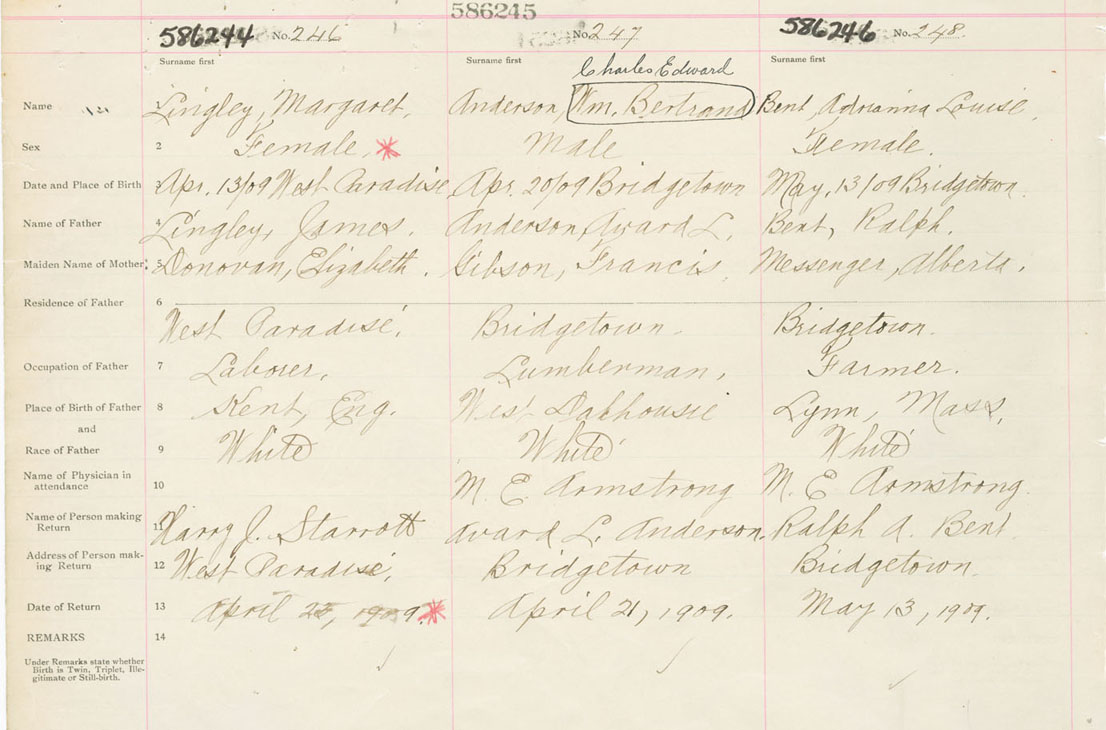 586245
586244 No. 246 No. 247 586246 No. 248.
Surname first Surname first Surname first
Charles Edward
Name 1 Lingley, Margaret. Anderson, Wm. Bertrand Bent, Adrianna Louise.
Sex 2 Female. * Male Female.
Date and Place of Birth 3 Apr. 13/09 West Paradise Apr. 20/09 Bridgetown May, 13/09 Bridgetown.
Name of Father 4 Lingley, James. Anderson, Award L. Bent, Ralph.
Maiden Name of Mother 5 Donovan, Elizabeth. Gibson, Francis. Messenger, Alberta.
Residence of Father 6
West Paradise. Bridgetown. Bridgetown.
Occupation of Father 7 Laborer. Lumberman, Farmer.
Place of Birth of Father 8 Kent, Eng. West Dalhousie Lynn, Mass.
and
Race of Father 9 White White White
Name of Physician in
attendance 10 M. E. Armstrong M. E. Armstrong.
Name of Person making
Return 11 Harry J. Starrott Award L. Anderson. Ralph A. Bent.
Address of Person mak-
ing Return 12 West Paradise. Bridgetown Bridgetown.
Date of Return 13 April , 1909. * April 21, 1909. May 13, 1909.
REMARKS 14
Under Remarks state whether
Birth is Twin, Triplet, Ille-
gitimate or Still-birth.